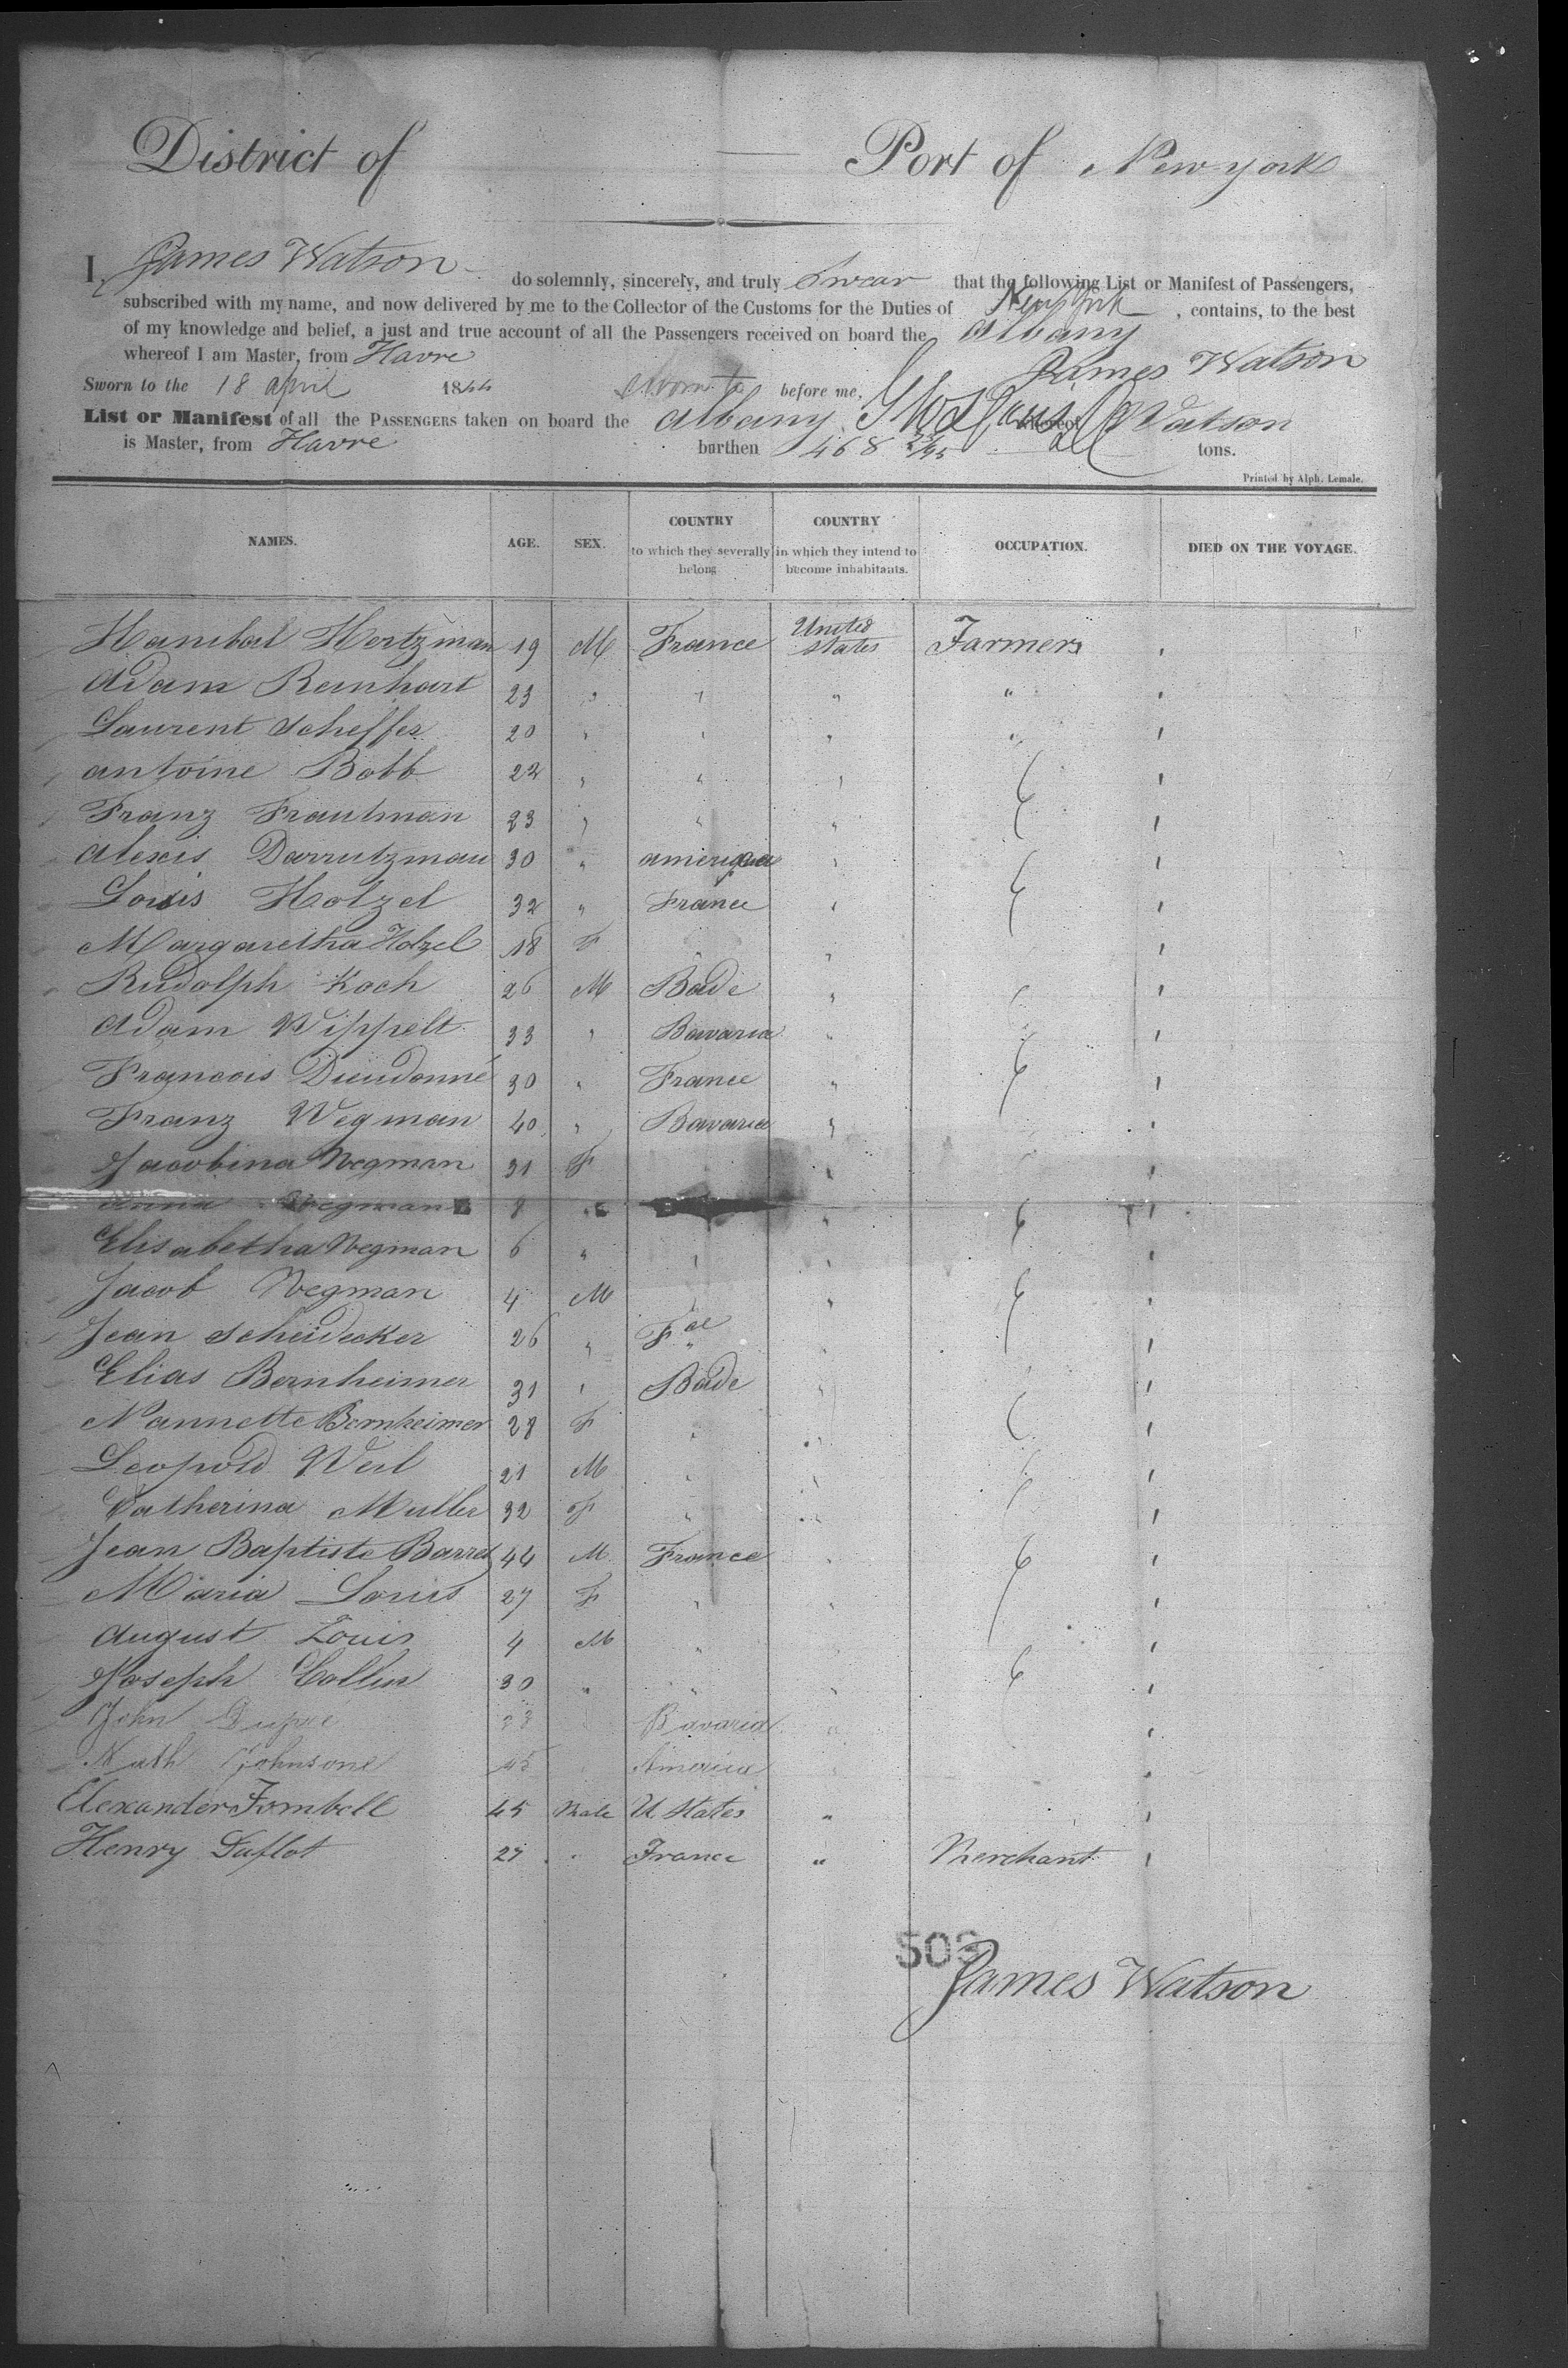 District of Port of New york
I, James Watson do solemnly, sincerely, and truly Swear that the following List or Manifest of Passengers,
subscribed with my name, and now delivered by me to the Collector of the Customs for the Duties of New York , contains, to the best
of my knowledge and belief, a just and true account of all the Passengers received on board the Albany
whereof I am Master, from Havre James Watson
Sworn to the 18 april 1844 Sworn to before me,
List or Manifest of all the PASSENGERS taken on board the Albany whereof Watson
is Master, from Havre burthen 468 tons.
Printed by Alph. Lemale.
NAMES. AGE. SEX. COUNTRY to which they severally belong COUNTRY in which they intend to become inhabitants. OCCUPATION. DIED ON THE VOYAGE.
Hanibal Hertzman 19 M France United States Farmers
Adam Reinhart 23 " " " "
Laurent Scheffer 20 " " " "
antoine Bobb 22 " " "
Franz Frautman 23 " " "
Alexis Darrutzman 30 " "
Louis Holzel 32 " France "
Margaretha Holzel 18 F " "
Rudolph Koch 26 M Bade "
Adam Wippelt 33 " Bavaria "
Francois Dieudonné 30 " France "
Franz Wegman 40 " Bavaria "
Jacobina Wegman 31 F "
Anna Wegman 8 " "
Elisabetha Wegman 6 " " "
Jacob Wegman 4 M " "
Jean Scheidecker 26 " Fce "
Elias Bernheimer 31 " Bade "
Nannette Bernheimer 28 F " "
Leopold Weil 21 M " "
Catherina Muller 32 F " "
Jean Baptiste Barret 44 M France "
Maria Louis 27 F " "
August Louis 4 M " "
Joseph Collin 30 " " "
John 33 Bavaria "
Nath Johnsone 45 " America "
Elexander Fombell 45 Male U States "
Henry Laflot 27 " France " Merchant
503
James Watson